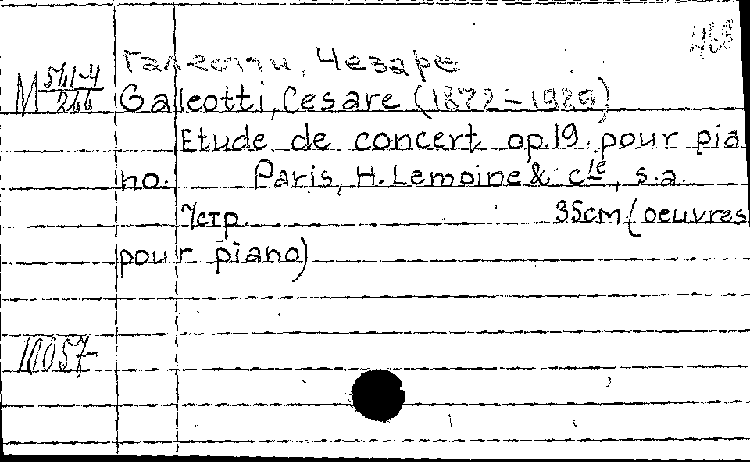 468
Галеотти, Чезаре
М 541-4/266 Galeotti, Cesare (1872-1929)
Etude de concert, op.19. pour pia
no. Paris, H. Lemoine & cie, s.a.
7стр. 35см (oeuvres
pour piano)
10057-